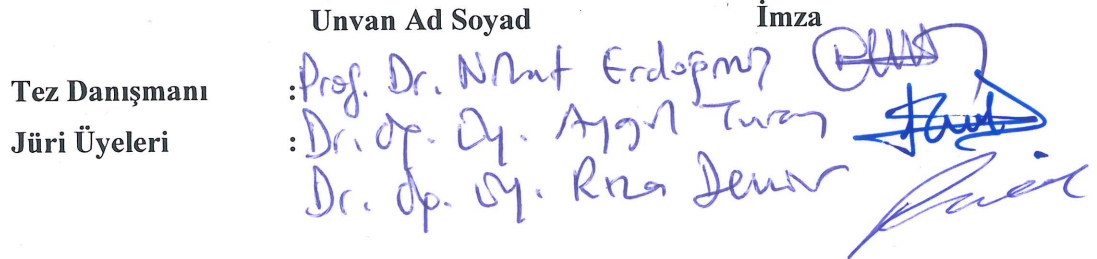 Unvan Ad Soyad İmza
Tez Danışmanı :Prof. Dr. Nihat Erdoğmuş
Jüri Üyeleri :Dr. Öğr. Üy. Aygül Turan
Dr. Öğr. Üy. Rıza Demir